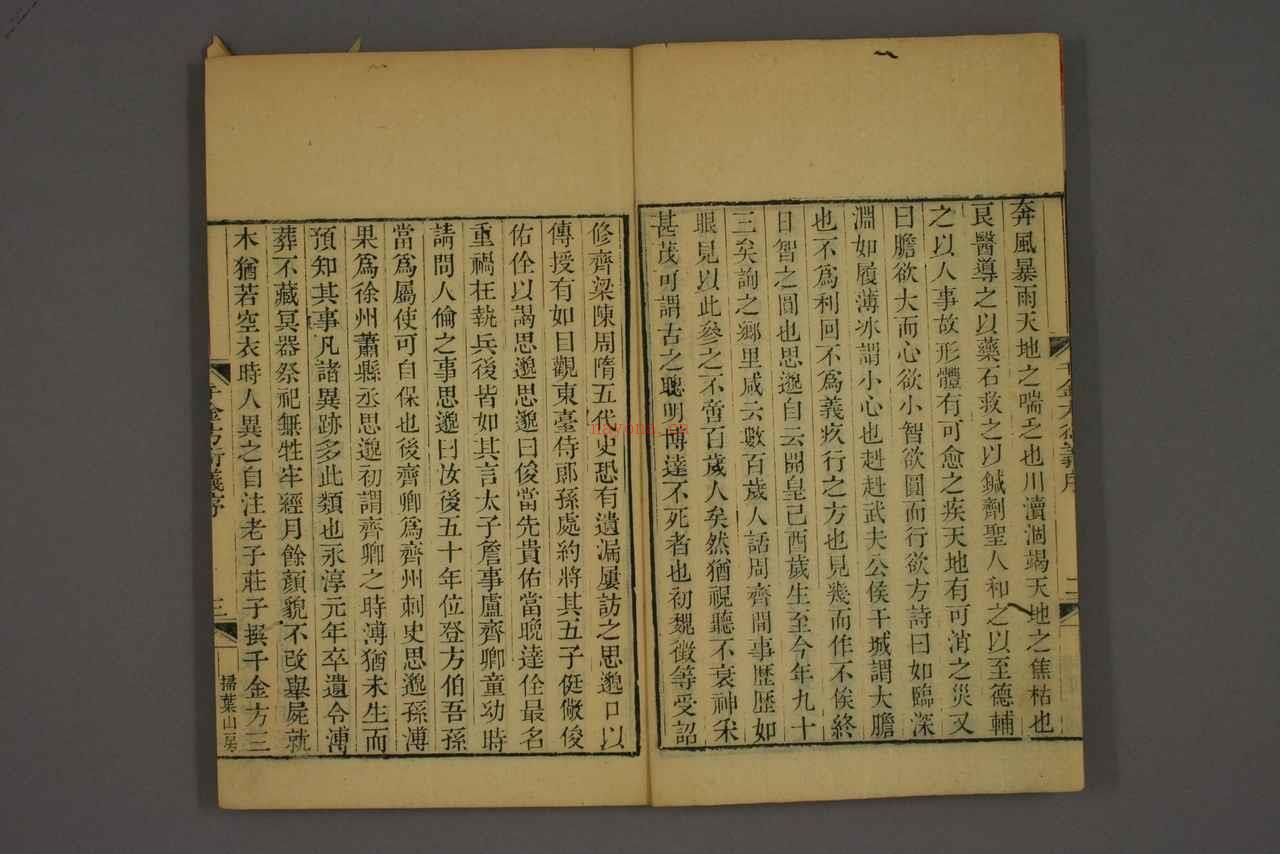 奔風暴雨天地之喘乏也川瀆涸竭天地之焦枯也
良醫導之以藥石救之以鍼劑聖人和之以至德輔
之以人事故形體有可愈之疾天地有可消之災又
曰膽欲大而心欲小智欲圓而行欲方詩曰如臨深
淵如履薄冰謂小心也赳赳武夫公侯干城謂大膽
也不爲利回不爲義疚行之方也見幾而作不俟終
日智之圓也思邈自云開皇己酉歲生至今年九十
三矣詢之鄉里咸云數百歲人話周齊間事歷歷如
眼見以此參之不啻百歲人矣然猶視聽不衰神采
甚茂可謂古之聰明博達不死者也初魏徵等受詔
二
修齊梁陳周隋五代史恐有遺漏屢訪之思邈口以
傳授有如目觀東臺侍郎孫處約將其五子侹儆俊
佑佺以謁思邈思邈曰俊當先貴佑當晚達佺最名
重禍在執兵後皆如其言太子詹事盧齊卿童幼時
請問人倫之事思邈曰汝後五十年位登方伯吾孫
當爲屬使可自保也後齊卿爲齊州刺史思邈孫溥
果爲徐州蕭縣丞思邈初謂齊卿之時溥猶未生而
預知其事凡諸異跡多此類也永淳元年卒遺令薄
葬不藏冥器祭祀無牲牢經月餘顏貌不改舉屍就
木猶若空衣時人異之自注老子莊子撰千金方三
千金方衍義序
三
掃葉山房